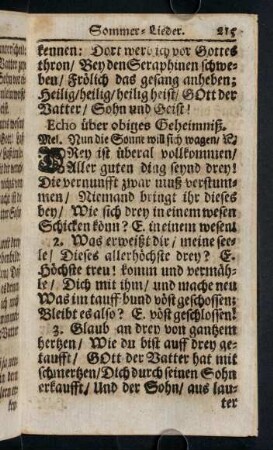 Sommer-Lieder. 215
kennen: Dort werd ich vor Gottes
thron/ Bey den Seraphinen schwe-
ben/ Frölich das gesang anheben;
Heilig/heilig/heilig heist/ GOtt der
Vatter/ Sohn und Geist!
Echo über obiges Geheimniß.
Mel. Nun die Sonne will sich wagen/ ꝛc.
DRey ist überal vollkommen/
Aller guten ding seynd drey!
Die vernunfft zwar muß verstum-
men/ Niemand bringt ihr dieses
bey/ Wie sich drey in einem wesen
Schicken könn? E. in einem wesen!
2. Was erweißt dir/ meine see-
le/ Dieses allerhöchste drey? E.
Höchste treu! komm und vermäh-
le/ Dich mit ihm/ und mache neu
Was im tauff bund vöst geschossen;
Bleibt es also? E. vöst geschlossen!
3. Glaub an drey von gantzem
hertzen/ Wie du bist auff drey ge-
taufft/ GOtt der Vatter hat mit
schmertzen/ Dich durch seinen Sohn
erkaufft/ Und der Sohn/ aus lau-
ter